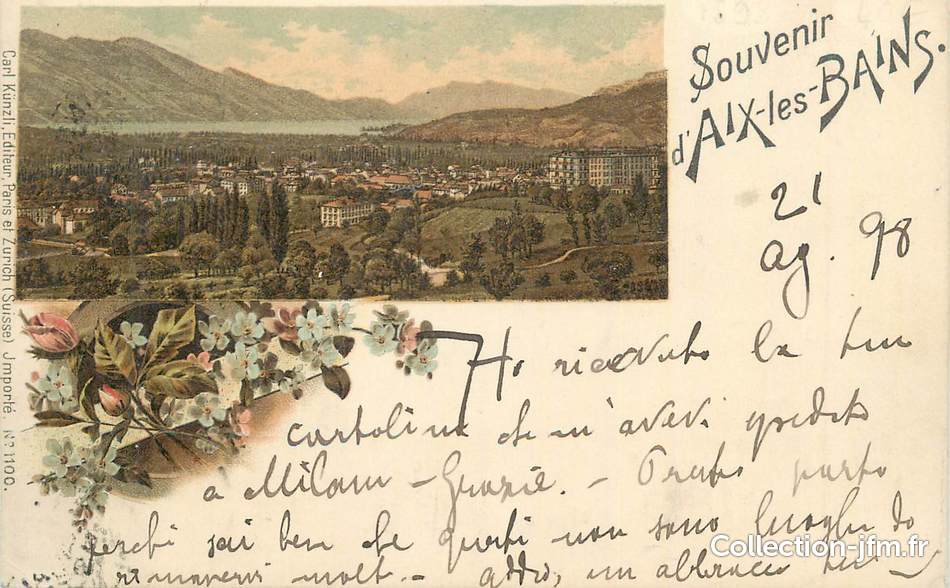 Souvenir
d'AIX-les-BAINS.
21
ag. 98
Ho ricevuto la tua
cartolina che m'avevi spedito
a Milano - Grazie. - Presto parto
perchè sai ben che questi non sono luoghi da
rimanervi molt. - addio, un abbraccio
Carl Künzli, Editeur, Paris et Zurich (Suisse) Jmporté. No. 1100.
Collection-jfm.fr